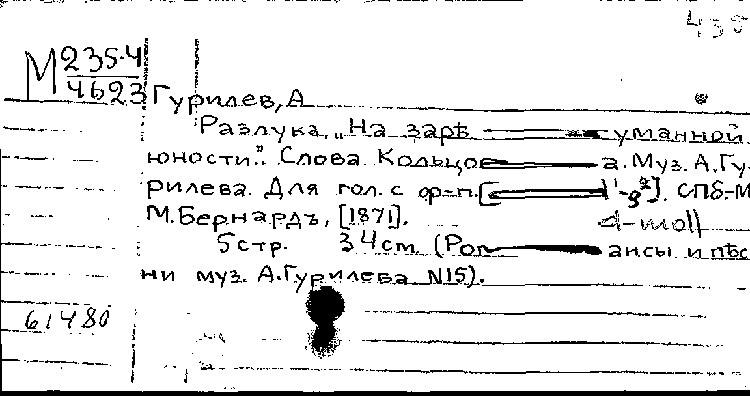 430
М 235-4
4623
Гурилев, А
Разлука. „На зарѣ уманной
юности". Слова Кольцо а. Муз. А. Гу-
рилева. Для гол. с ф-п. [ ¹-g²]. СПб. М
М. Бернардъ, [1871]. d-moll
5 стр. 34 cm. (Ро ансы и пѣс
ни муз. А. Гурилева N15).
61480